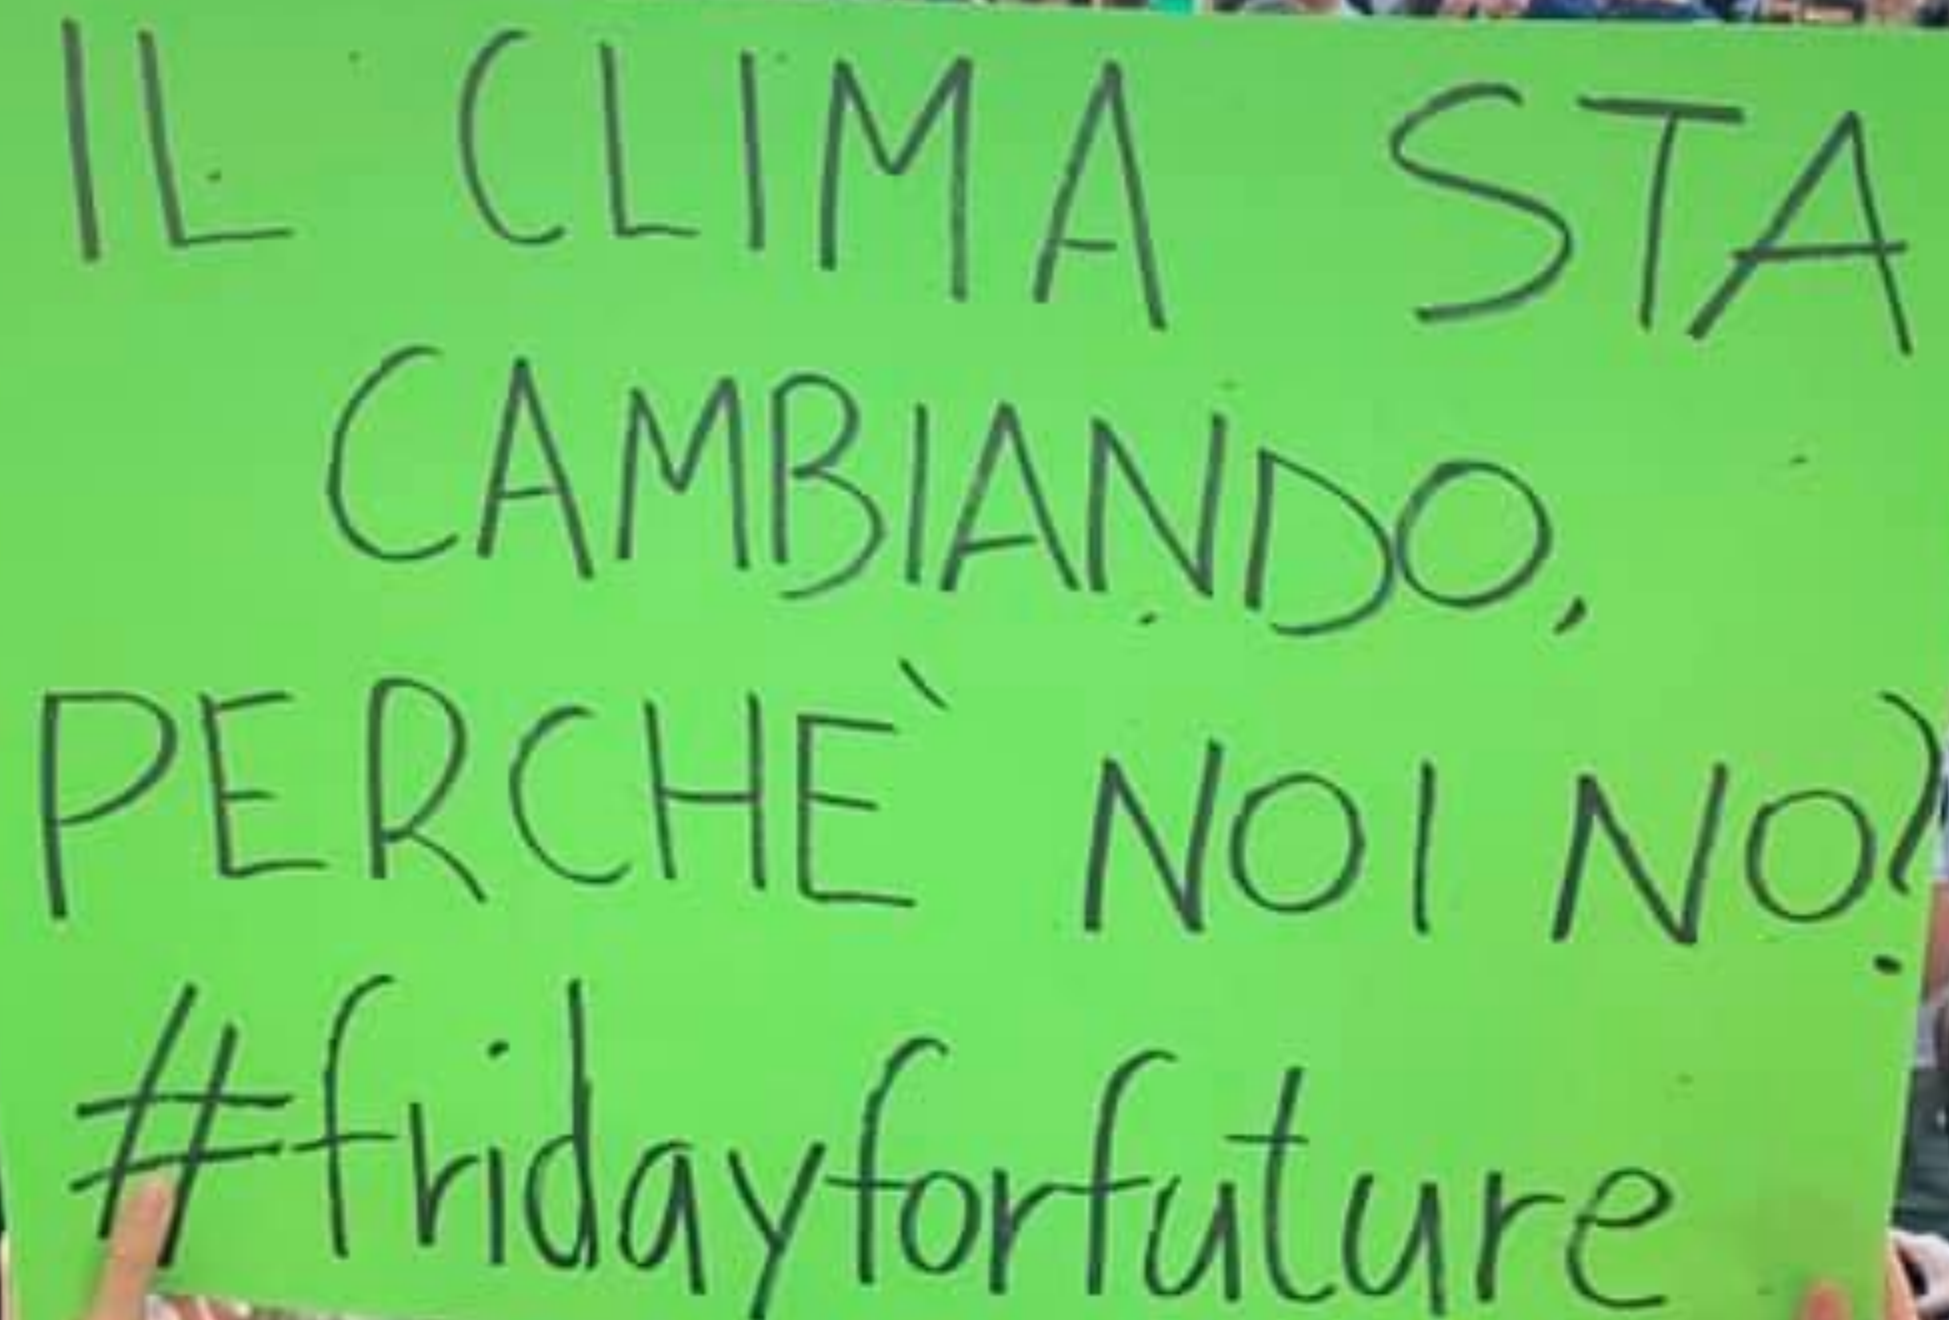 IL CLIMA STA
CAMBIANDO,
PERCHÈ NOI NO?
#fridayforfuture